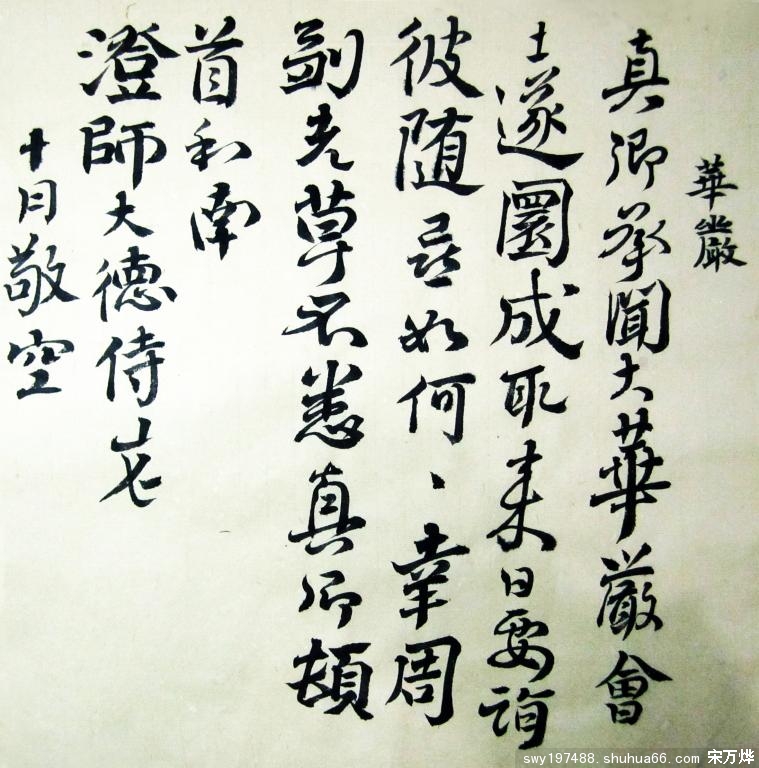 華嚴
真卿承聞大華嚴會
士遂圓成取来日要詣
彼随喜如何、、幸周
副老草不悉真卿頓
首和南
澄師大徳侍者
十月敬空
swy197488.shuhua66.com 宋万烨